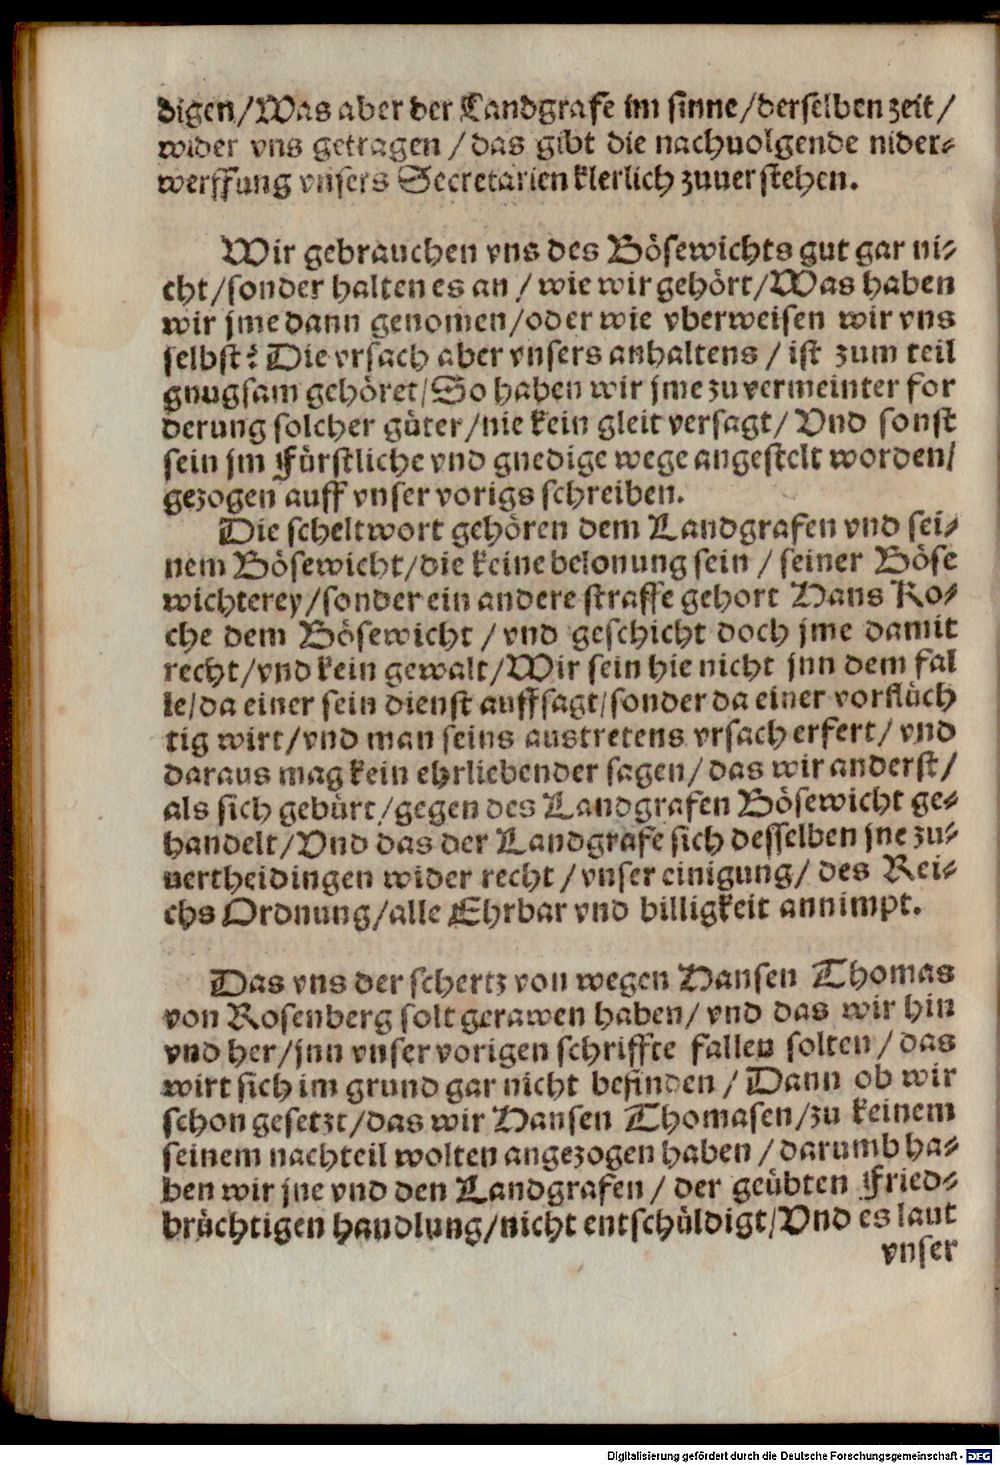 digen/Was aber der Landgrafe im sinne/derselben zeit/
wider vns getragen/das gibt die nachuolgende nider-
werffung vnsers Secretarien klerlich zuuerstehen.
Wir gebrauchen vns des Bösewichts gut gar ni-
cht/sonder halten es an/wie wir gehört/Was haben
wir jme dann genomen/oder wie vberweisen wir vns
selbst? Die vrsach aber vnsers anhaltens/ist zum teil
gnugsam gehöret/So haben wir jme zu vermeinter for
derung solcher güter/nie kein gleit versagt/Vnd sonst
sein jm Fürstliche vnd gnedige wege angestelt worden/
gezogen auff vnser vorigs schreiben.
Die scheltwort gehören dem Landgrafen vnd sei-
nem Bösewicht/die keine belonung sein/seiner Böse
wichterey/sonder ein andere straffe gehort Hans Ro-
che dem Bösewicht/vnd geschicht doch jme damit
recht/vnd kein gewalt/Wir sein hie nicht jnn dem fal
le/da einer sein dienst auffsagt/sonder da einer vorflüch
tig wirt/vnd man seins austretens vrsach erfert/vnd
daraus mag kein ehrliebender sagen/das wir anderst/
als sich gebürt/gegen des Landgrafen Bösewicht ge-
handelt/Vnd das der Landgrafe sich desselben jne zu-
uertheidingen wider recht/vnser einigung/des Rei-
chs Ordnung/alle Ehrbar vnd billigkeit annimpt.
Das vns der schertz von wegen Hansen Thomas
von Rosenberg solt gerawen haben/vnd das wir hin
vnd her/jnn vnser vorigen schriffte fallen solten/das
wirt sich im grund gar nicht befinden/Dann ob wir
schon gesetzt/das wir Hansen Thomasen/zu keinem
seinem nachteil wolten angezogen haben/darumb ha-
ben wir jne vnd den Landgrafen/der geübten Fried-
brüchtigen handlung/nicht entschüldigt/Vnd es laut
vnser
Digitalisierung gefördert durch die Deutsche Forschungsgemeinschaft - DFG